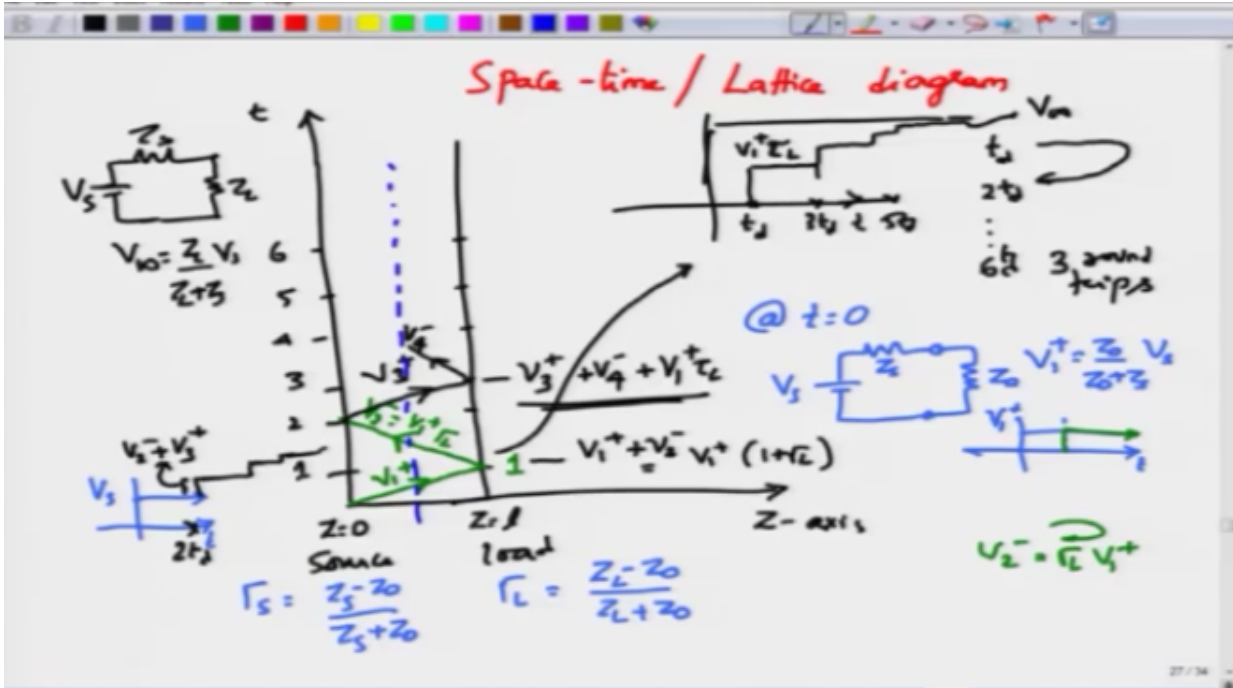 Space-time / Lattice diagram
t
Z_s
V_s
Z_L
V_∞ = Z_L V_s
Z_L + Z_s
6
5
4
3
2
1
V_4^-
V_3^+
V_2^- = V_1^+ Γ_L
V_1^+
V_2^- + V_3^+
V_s
2t_d
Z=0
Source
Z=l
load
Z-axis
1
V_3^+ + V_4^- + V_1^+ τ_L
V_1^+ + V_2^- V_1^+ (1+Γ_L)
=
V_∞
V_1^+ τ_L
t_d 3t_d t 5t_d
t_d
2t_d
6t_d 3 round
trips
@ t=0
V_s
Z_s
Z_0
V_1^+ = Z_0 V_s
Z_0 + Z_s
V_1^+
t
V_2^- = Γ_L V_1^+
Γ_s = Z_s - Z_0
Z_s + Z_0
Γ_L = Z_L - Z_0
Z_L + Z_0
27 / 34